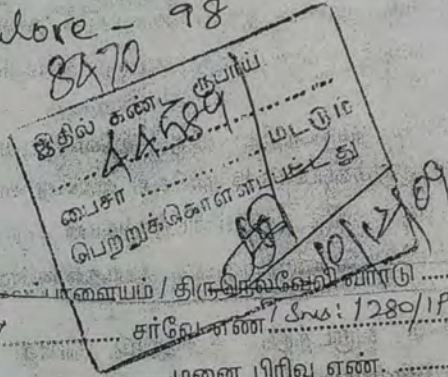 lore - 98
8470
இதில் கண்ட ரூபாய்
44589
பைசா .................... மட்டும்
பெற்றுக்கொள்ளப்பட்டது
10/12/09
பாளையம் / திருநெல்வேலி வார்டு ........
சர்வே எண். / Sno: 1280/1P
மனை பிரிவு எண். ........